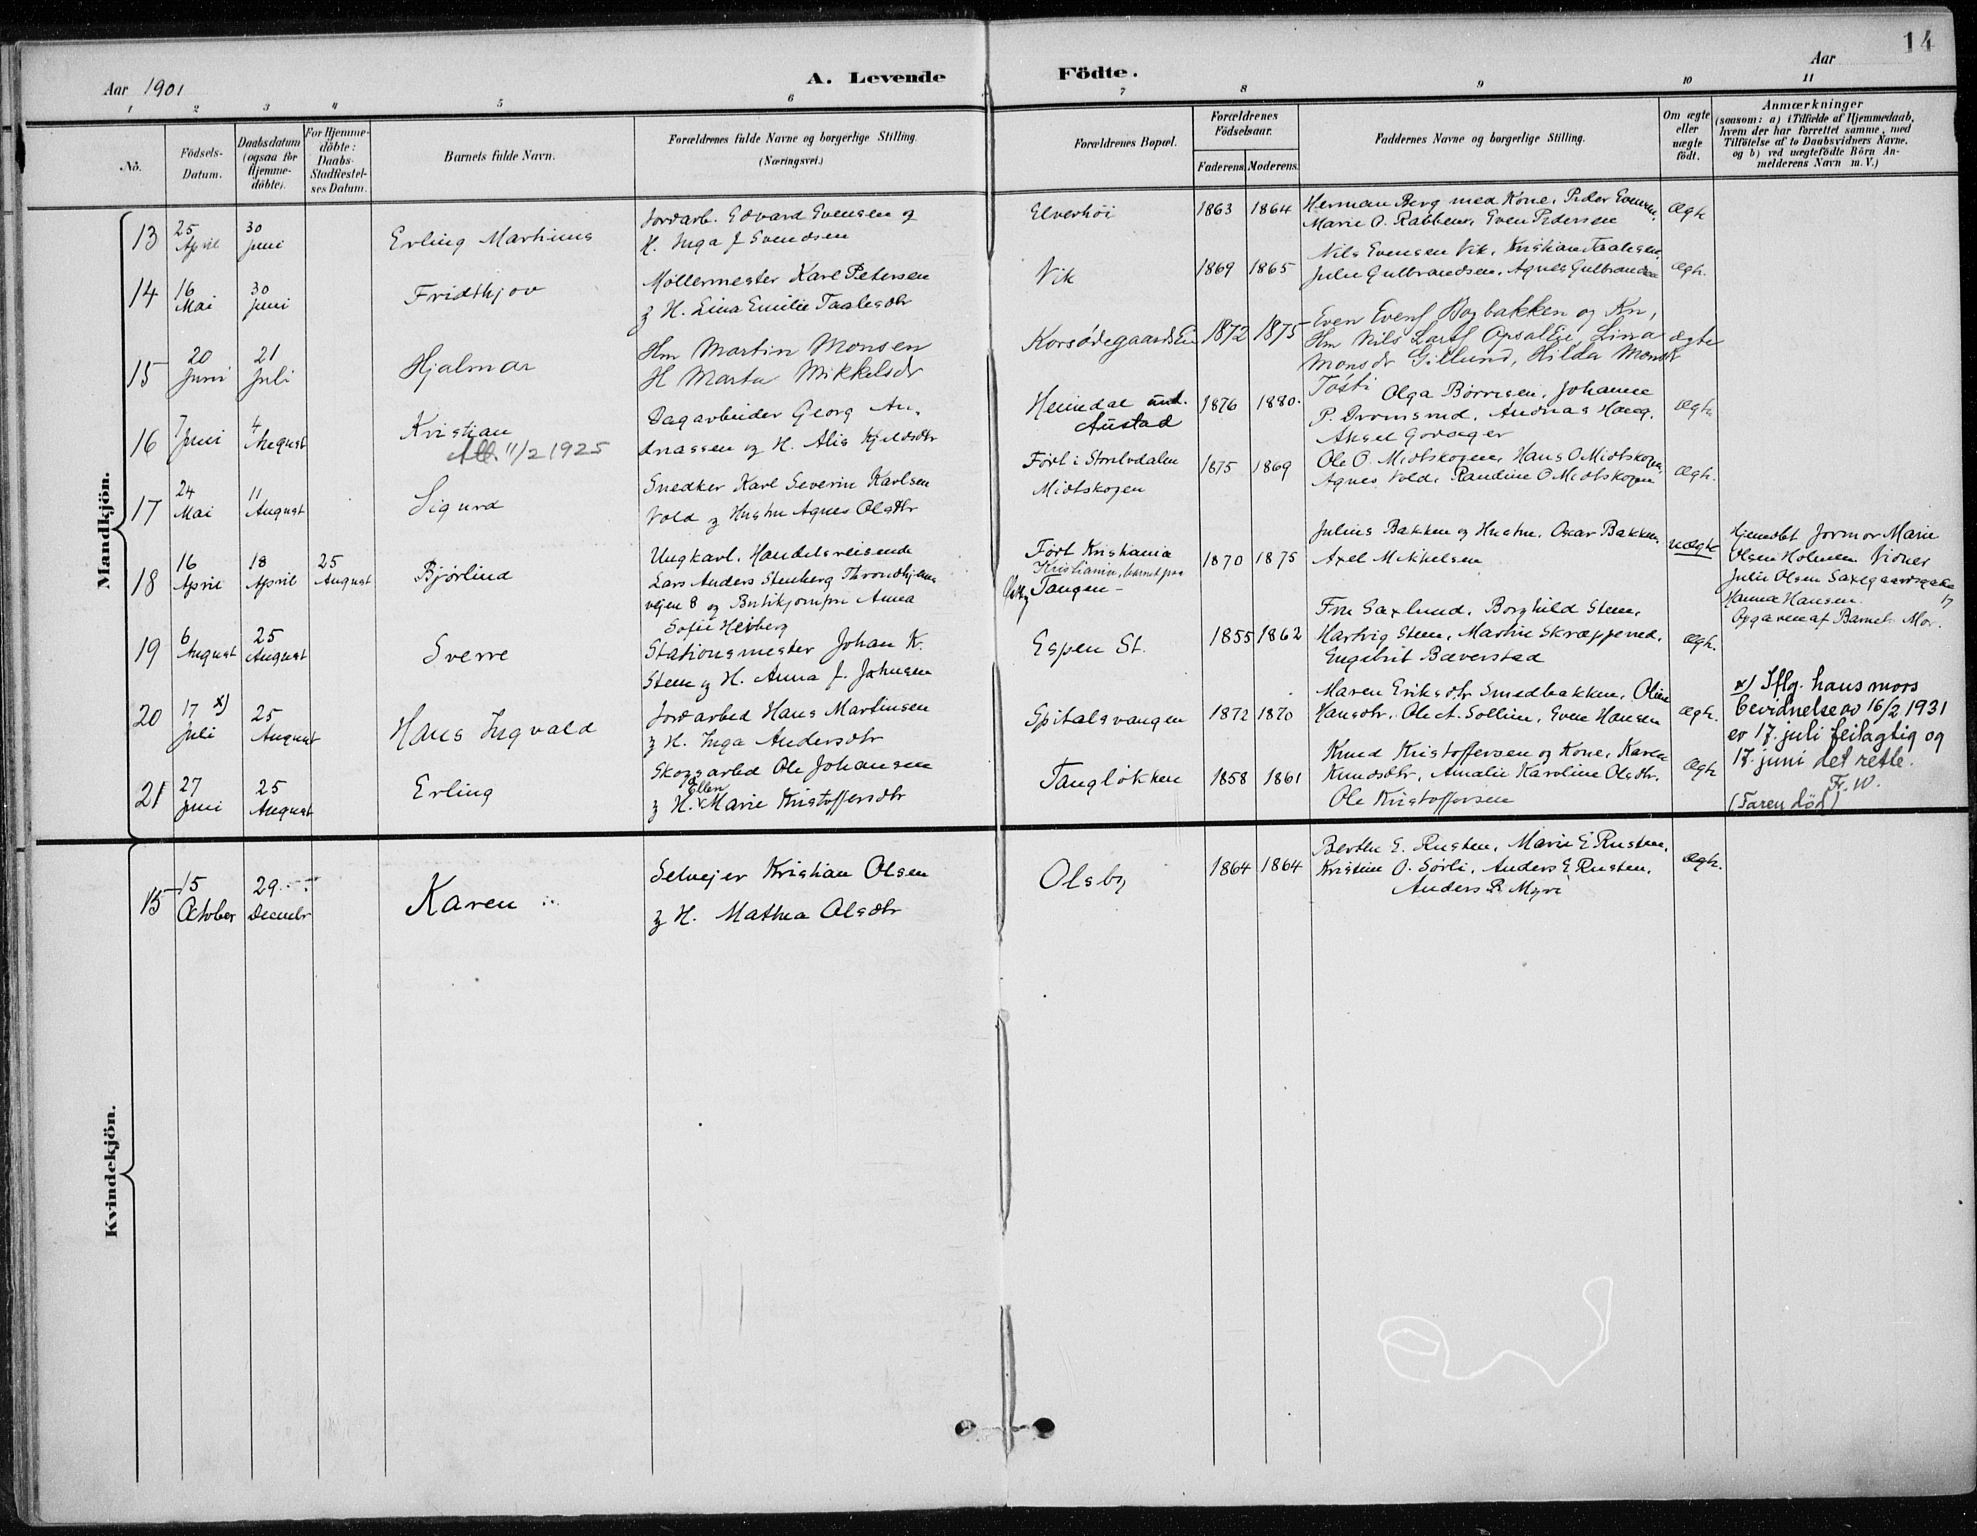 14
Aar 1901
A. Levende Födte.
Aar
1 2 3 4 5 6 7 8 9 10 11
No.
Födsels-
Datum.
Daabsdatum
(ogsaa för
Hjemme-
döbte).
For Hjemme-
döbte:
Daabs-
Stadfæstel-
ses Datum.
Barnets fulde Navn.
Forældrenes fulde Navne og borgerlige Stilling.
(Næringsvei.)
Forældrenes Bopæl.
Forældrenes
Födselsaar.
Faderens. Moderens.
Faddernes Navne og borgerlige Stilling.
Om ægte
eller
uægte
födt.
Anmærkninger
(saasom: a) i Tilfælde af Hjemmedaab,
hvem der har forrettet samme, med
Tilföielse af to Daabsvidners Navne,
og b) ved uægtefödte Börn An-
melderens Navn m. V.)
Mandkjön.
13
25
April
30
Juni
Erling Martinus
Jordarb. Edvard Evensen og
H. Inga J. Svendsen
Elverhöi
1863 1864
Herman Berg med Kone, Peder Evensen,
Marie O. Rabben, Even Pedersen
Ægte
14
16
Mai
30
Juni
Fridthjov
Møllermester Karl Petersen
og H. Lina Emilie Taalesdtr
Vik
1869 1865
Nils Evensen Vik, Kristian Taalesen,
Julie Gulbrandsen, Agnes Gulbrandsen
Ægte.
15
20
Juni
21
Juli
Hjalmar
Hm Martin Monsen
H Marta Mikkelsdr
Korsödegaards Ei
1872 1875
Even Evens Bagbakken og Kn,
Hm Nils Larss Opsal Ei, Lina
Monsdr Gillund, Hilda Monsdr
ægte
16
7
Juni
4
August
Kristian
Att. 11/2 1925
Dagarbeider Georg An,
dreassen og H. Alis Kjeldsdtr
Heimdal und.
Austad
1876 1880.
Tosti Olga Börresen, Johanne
P. Dromsrud, Andreas Haug,
Aksel Godager
Ægte
17
24
Mai
11
August
Sigurd
Snedker Karl Severin Karlsen
Vold og Hustru Agnes Olsdtr
Født i Storelvdalen
Midtskogen
1875 1869
Ole O. Midtskogen, Hans O Midtskogen,
Agnes Vold, Randine O Midtskogen
Ægte.
18
16
April
18
April
25
August
Bjørlind
Ungkarl. Handelsreisende
Lars Anders Stenberg Throndhjems
vejen 8 og Butikjomfru Anna
Sofie Heiberg
Født Kristiania
Kristiania, barnet paa
Tangen -
1870 1875
Julius Bakken og Hustru, Oscar Bakken,
Axel Mikkelsen
uægte
Hjemdbt Jormor Marie
Olsen Holmen Vidner
Julie Olsen Saxegaardsgake
Hanna Hansen 17
Opgaven af Barnets Mor.
19
6
August
25
August
Sverre
Stationsmester Johan K.
Steen og H. Anna J. Johnsen
Espen St.
1855 1862
Fru Saxlund, Borghild Steen,
Hartvig Steen, Martin Skræpperud,
Engebrit Bæverstad
Ægte.
20
17 x)
Juli
25
August
Hans Ingvald
Jordarbed Hans Martinsen
og H. Inga Andersdtr
Spitalsvangen
1872 1870
Maren Eriksdtr Smedbakken, Oline
Hansdtr, Ole A. Sollien, Even Hansen
Ægte.
x) Iflg. hans mors
bevidnelse av 16/2 1931
er 17. juli feilagtig og
17. juni det rette.
Fr. W.
21
27
Juni
25
August
Erling
Skogsarbed Ole Johansen
og H. x Ellen Marie Kristoffersdtr
Tangløkken
1858 1861
Knud Kristoffersen og Kone, Karen
Knudsdtr, Amalie Karoline Olsdtr,
Ole Kristoffersen
Ægte
(Faren död)
Kvindekjön.
15
15
October
29
Decembr
Karen
Selvejer Kristian Olsen
og H. Mathea Olsdtr
Olsby
1864 1864
Berthe E. Rusten, Marie E Rusten,
Kristine O. Sørli, Anders E Rusten,
Anders P. Myri
Ægte.